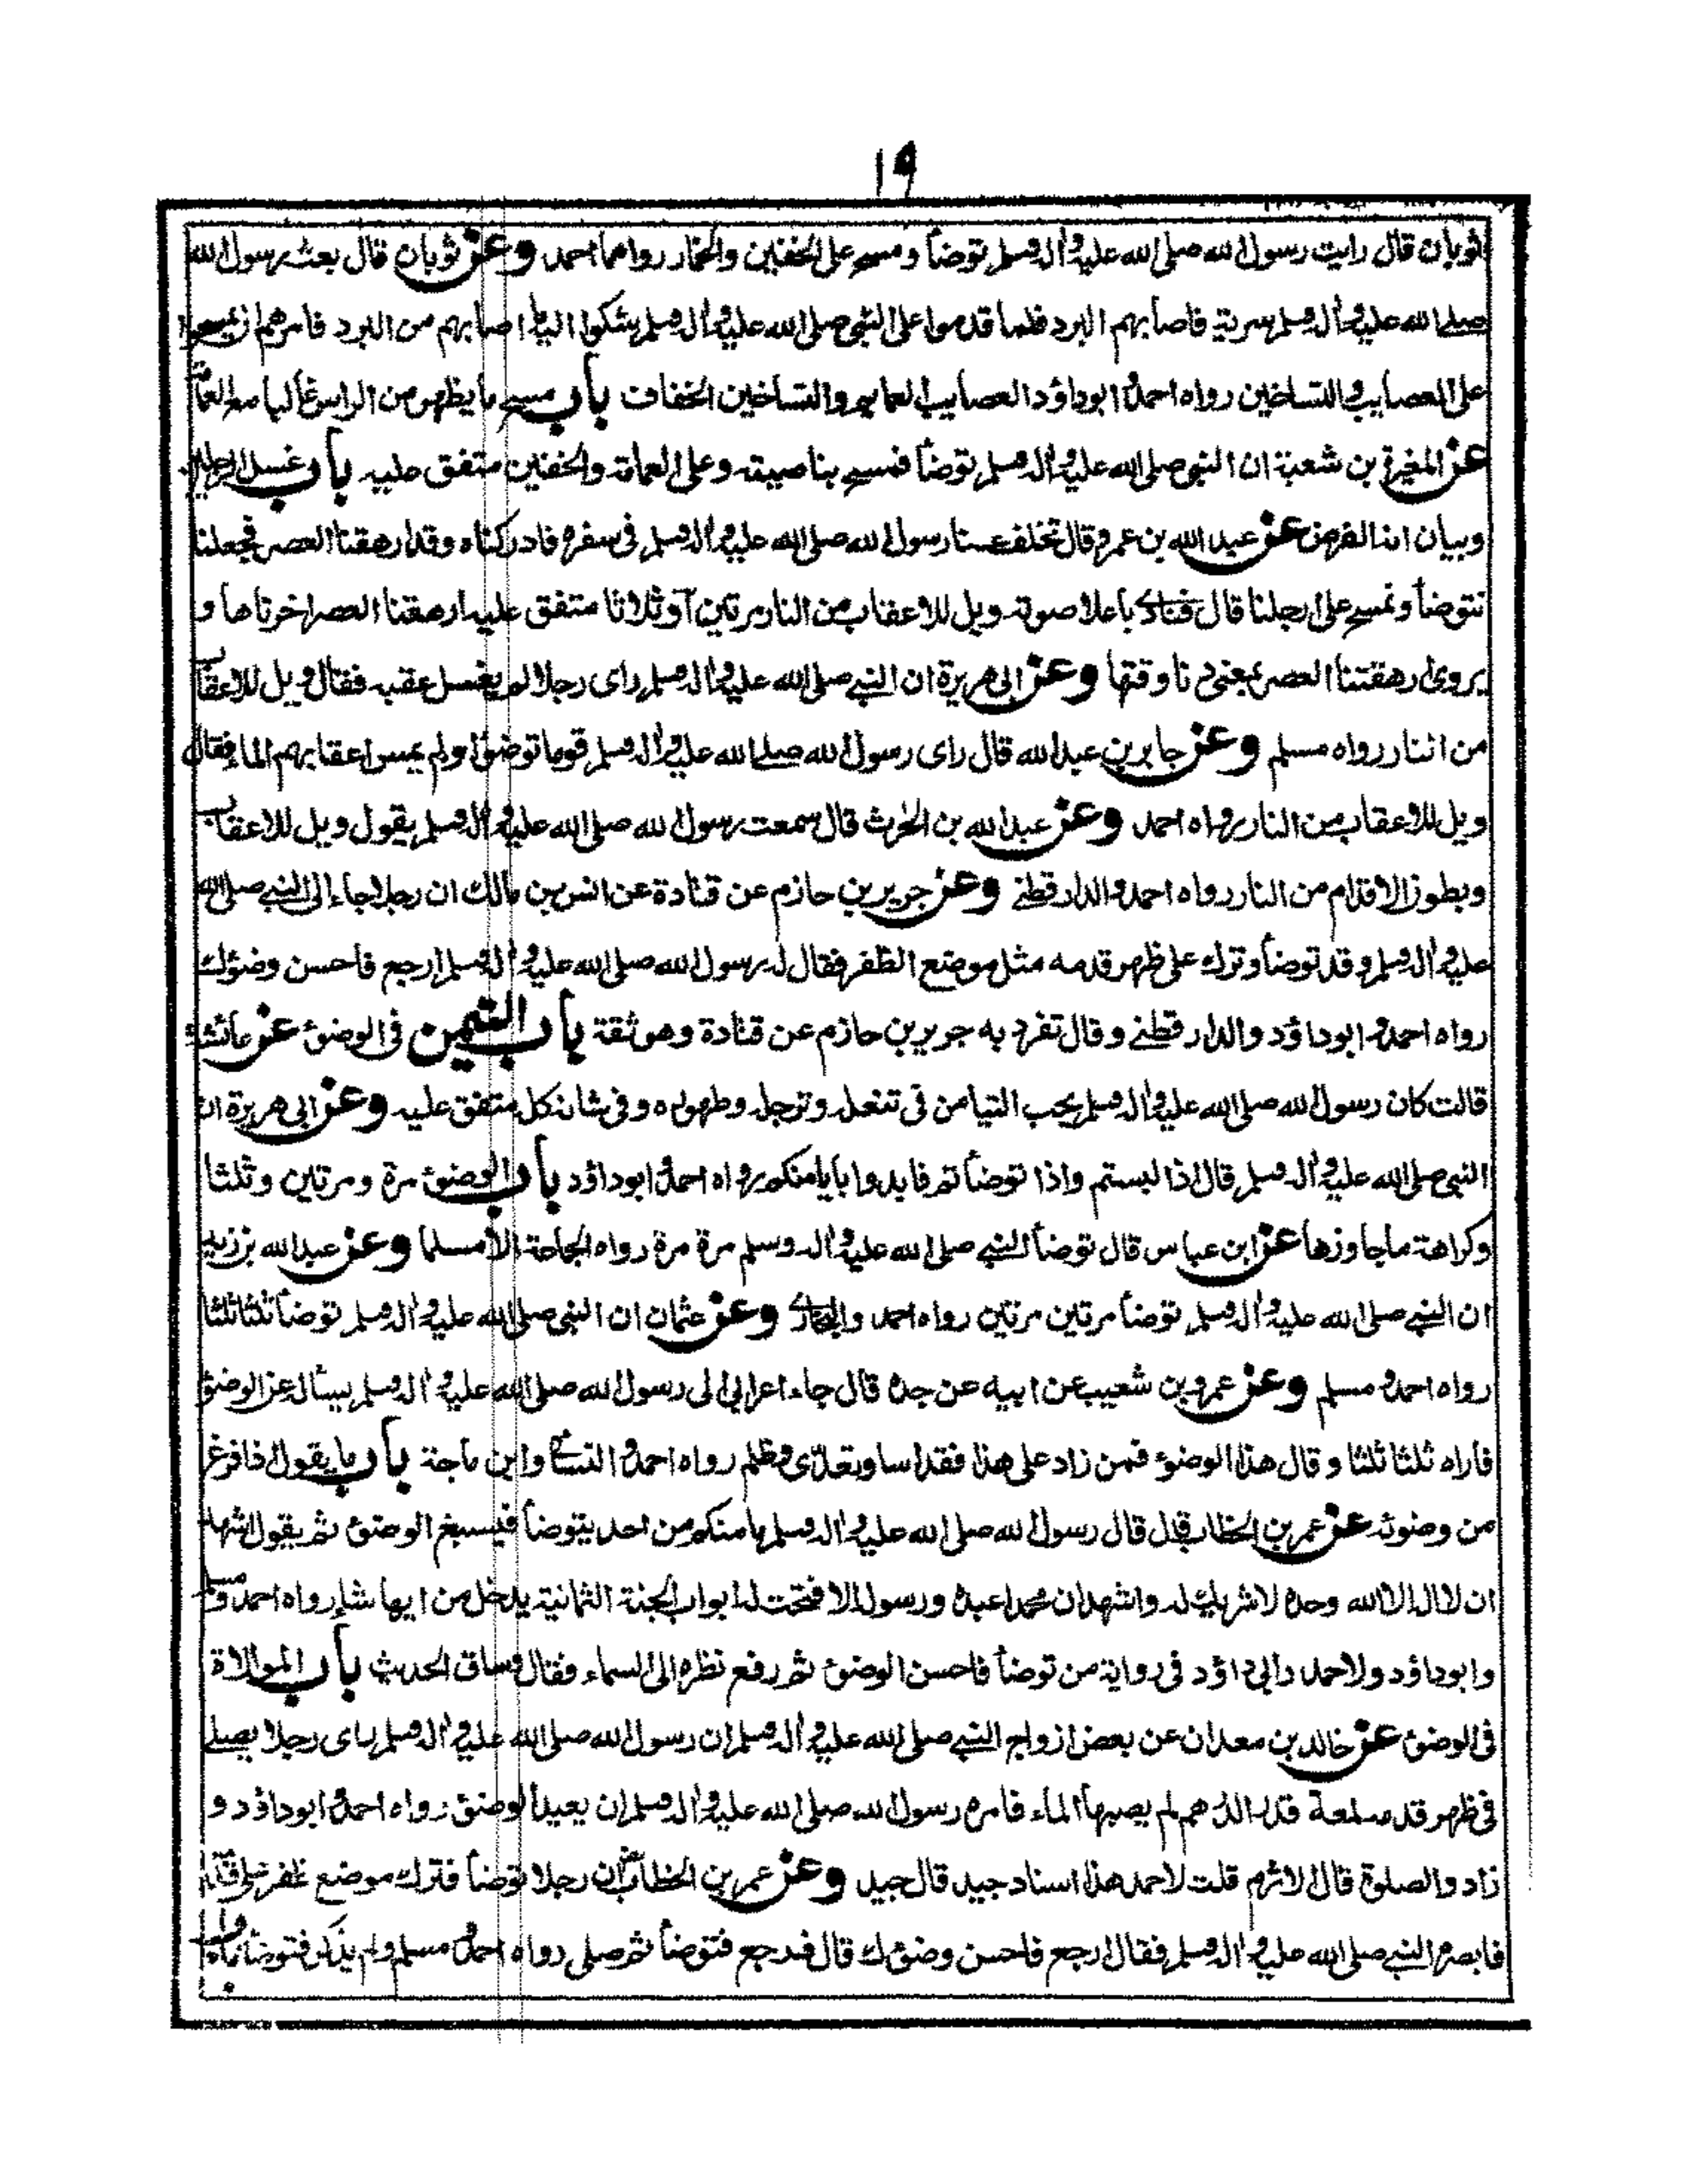 ١٩
ثوبان قال رايت رسول الله صلى الله عليه واله وسلم توضأ ومسح على الخفين والخمار رواهما احمد وعن ثوبان قال بعث رسول الله
صلى الله عليه واله وسلم سرية فاصابهم البرد فلما قدموا على النبي صلى الله عليه واله وسلم شكوا اليه ما اصابهم من البرد فامرهم ان يمسحوا
على العصايب والتساخين رواه احمد وابوداؤد العصايب العمايم والتساخين الخفاف باب مسح ما يظهر من الراس غالبا مع العمامة
عن المغيرة بن شعبة ان النبي صلى الله عليه واله وسلم توضأ فمسح بناصيته وعلى العمامة والخفين متفق عليه باب غسل الرجلين
وبيان انه الفرض عن عبد الله بن عمرو قال تخلف عنا رسول الله صلى الله عليه واله وسلم في سفرة فادركناه وقد ارهقنا العصر فجعلنا
نتوضأ ونمسح على ارجلنا قال فنادى باعلا صوته ويل للاعقاب من النار مرتين او ثلاثا متفق عليه ارهقنا العصر اخرناها و
يروى ارهقتنا العصر بمعنى دنا وقتها وعن ابى هريرة ان النبي صلى الله عليه واله وسلم راى رجلا لم يغسل عقبه فقال ويل للاعقاب
من النار رواه مسلم وعن جابر بن عبد الله قال راى رسول الله صلى الله عليه واله وسلم قوما توضؤا ولم يمس اعقابهم الماء فقال
ويل للاعقاب من النار رواه احمد وعن عبد الله بن الحرث قال سمعت رسول الله صلى الله عليه واله وسلم يقول ويل للاعقاب
وبطون الاقدام من النار رواه احمد والدارقطنى وعن جرير بن حازم عن قتادة عن انس بن مالك ان رجلا جاء الى النبي صلى الله
عليه واله وسلم وقد توضأ وترك على ظهر قدمه مثل موضع الظفر فقال له رسول الله صلى الله عليه واله وسلم ارجع فاحسن وضوئك
رواه احمد وابوداؤد والدارقطنى وقال تفرد به جرير بن حازم عن قتادة وهو ثقة باب التيمن في الوضوء عن عائشة
قالت كان رسول الله صلى الله عليه واله وسلم يحب التيامن في تنعله وترجله وطهوره وفي شانه كله متفق عليه وعن ابى هريرة ان
النبي صلى الله عليه واله وسلم قال اذا لبستم واذا توضأتم فابدوا بايامنكم رواه احمد وابوداؤد باب الوضوء مرة ومرتين وثلثا
وكراهة ما جاوزها عن ابن عباس قال توضأ النبي صلى الله عليه واله وسلم مرة مرة رواه الجماعة الا مسلما وعن عبد الله بن زيد
ان النبي صلى الله عليه واله وسلم توضأ مرتين مرتين رواه احمد والبخارى وعن عثمان ان النبي صلى الله عليه واله وسلم توضأ ثلثا ثلثا
رواه احمد ومسلم وعن عمرو بن شعيب عن ابيه عن جده قال جاء اعرابى الى رسول الله صلى الله عليه واله وسلم يسأله عن الوضوء
فاراه ثلثا ثلثا وقال هذا الوضوء فمن زاد على هذا فقد اسا وتعدى وظلم رواه احمد والنسائى وابن ماجة باب ما يقول اذا فرغ
من وضوئه عن عمر بن الخطاب قال قال رسول الله صلى الله عليه واله وسلم ما منكم من احد يتوضأ فيسبغ الوضوء ثم يقول اشهد
ان لا اله الا الله وحده لا شريك له واشهد ان محمدا عبده ورسوله الا فتحت له ابواب الجنة الثمانية يدخل من ايها شاء رواه احمد ومسلم
وابوداؤد ولاحمد وابى داؤد في رواية من توضأ فاحسن الوضوء ثم رفع نظره الى السماء فقال وساق الحديث باب الموالاة
في الوضوء عن خالد بن معدان عن بعض ازواج النبي صلى الله عليه واله وسلم ان رسول الله صلى الله عليه واله وسلم راى رجلا يصلى
في ظهر قدمه لمعة قدر الدرهم لم يصبها الماء فامره رسول الله صلى الله عليه واله وسلم ان يعيد الوضوء رواه احمد وابوداؤد و
زاد والصلوة قال الاثرم قلت لاحمد هذا اسناد جيد قال جيد وعن عمر بن الخطاب ان رجلا توضأ فترك موضع ظفر على قدمه
فابصره النبي صلى الله عليه واله وسلم فقال ارجع فاحسن وضوءك قال فرجع فتوضأ ثم صلى رواه احمد ومسلم ولم يذكر فتوضأ